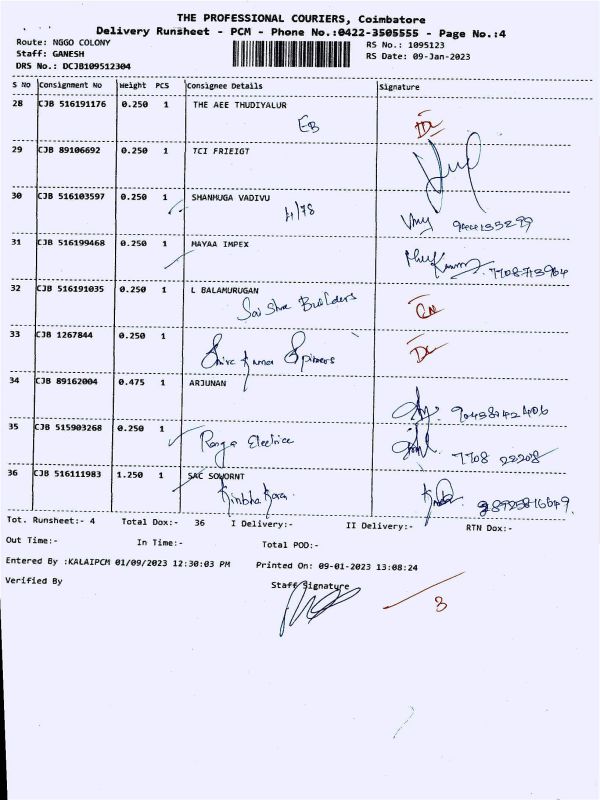 THE PROFESSIONAL COURIERS, Coimbatore
Delivery Runsheet - PCM - Phone No.:0422-3505555 - Page No.:4
Route: NGGO COLONY RS No.: 1095123
Staff: GANESH RS Date: 09-Jan-2023
DRS No.: DCJB109512304
S No Consignment No Weight PCS Consignee Details Signature
28 CJB 516191176 0.250 1 THE AEE THUDIYALUR
EB
29 CJB 89106692 0.250 1 TCI FRIEIGT
30 CJB 516103597 0.250 1 SHANMUGA VADIVU
4/78
31 CJB 516199468 0.250 1 MAYAA IMPEX
7708713964
32 CJB 516191035 0.250 1 L BALAMURUGAN
Sai Shre Builders
33 CJB 1267844 0.250 1
34 CJB 89162004 0.475 1 ARJUNAN
35 CJB 515903268 0.250 1
Ranga Electrice
7708 22208
36 CJB 516111983 1.250 1 SAC SOWORNT
Tot. Runsheet:- 4 Total Dox:- 36 I Delivery:- II Delivery:- RTN Dox:-
Out Time:- In Time:- Total POD:-
Entered By :KALAIPCM 01/09/2023 12:30:03 PM Printed On: 09-01-2023 13:08:24
Verified By Staff Signature
3